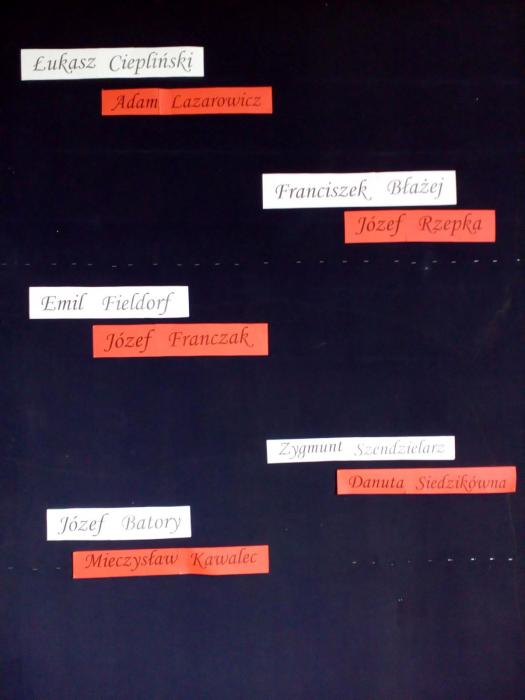 Łukasz Ciepliński
Adam Lazarowicz
Franciszek Błażej
Józef Rzepka
Emil Fieldorf
Józef Franczak
Zygmunt Szendzielarz
Danuta Siedzikówna
Józef Batory
Mieczysław Kawalec